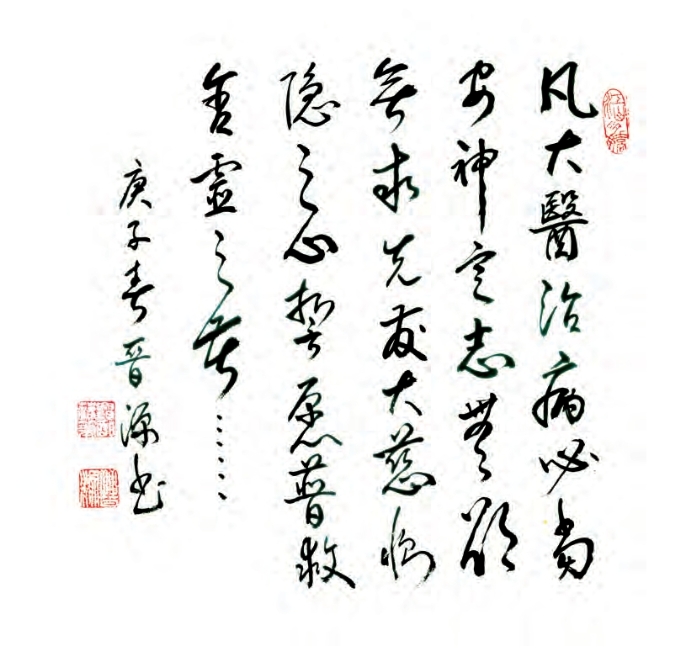 凡大醫治病必當
安神定志無欲
無求先发大慈惻
隐之心誓愿普救
含靈之苦……
庚子春晉源书